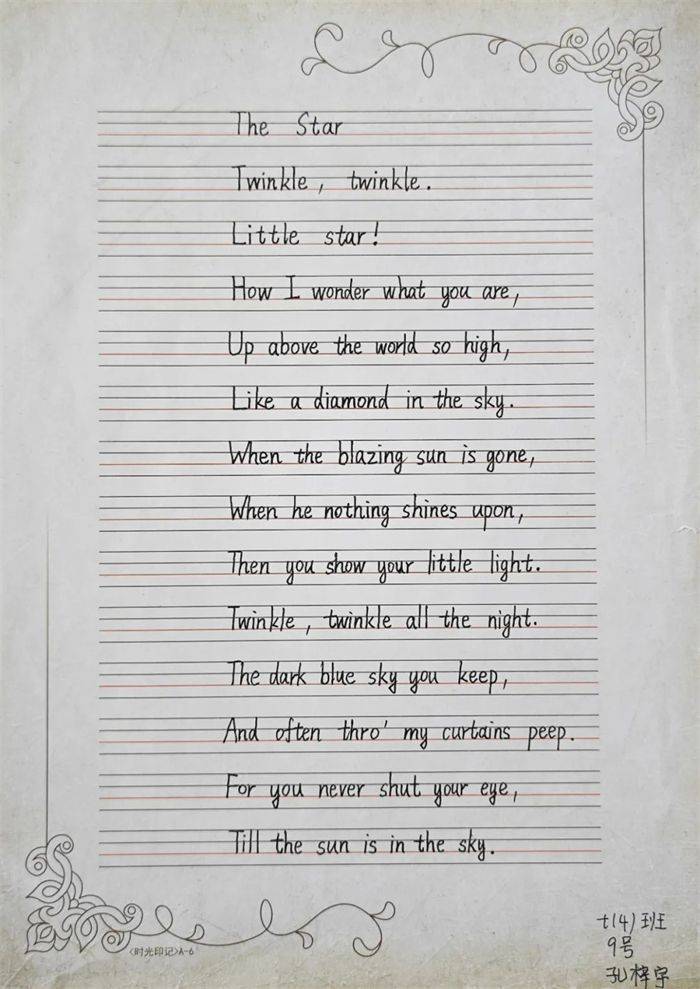 The Star
Twinkle, twinkle.
Little star!
How I wonder what you are,
Up above the world so high,
Like a diamond in the sky.
When the blazing sun is gone,
When he nothing shines upon,
Then you show your little light.
Twinkle, twinkle all the night.
The dark blue sky you keep,
And often thro' my curtains peep.
For you never shut your eye,
Till the sun is in the sky.
七(4)班
9号
孔梓宇
《时光印记》A-6